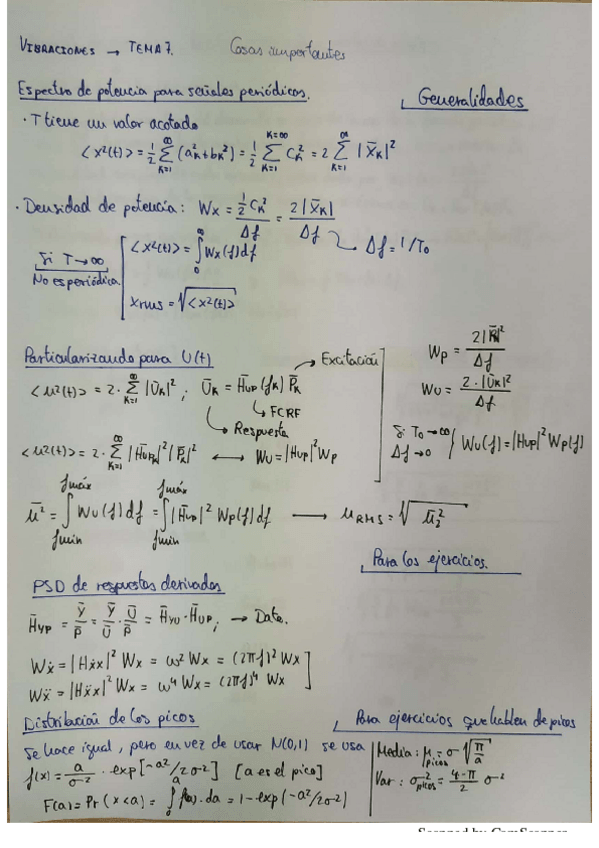 VIBRACIONES → TEMA 7. Cosas importantes
Espectro de potencia para señales periódicas. Generalidades
· T tiene un valor acotado
<x²(t)> = 1/2 Σ_{k=1}^{∞} (a_k²+b_k²) = 1/2 Σ_{k=1}^{k=∞} C_k² = 2 Σ_{k=1}^{∞} |X̄_k|²
· Densidad de potencia: Wx = (1/2 C_k²)/Δf = 2|X̄_k|/Δf → Δf = 1/T₀
Si T→∞ <x²(t)> = ∫_0^∞ Wx(f)df
No es periódica x_rms = √<x²(t)>
Particularizando para U(t) → Excitación
<u²(t)> = 2· Σ_{k=1}^{∞} |Ū_k|² ; Ū_k = H̄_UP(f_k) P̄_k
→ FCRF
→ Respuesta
<u²(t)> = 2· Σ_{k=1}^{∞} |H̄_UPk|² |P̄_k|² ↔ W_U = |H_UP|² W_P
W_P = 2|P̄_k|²/Δf
W_U = 2·|Ū_k|²/Δf
Si T₀→∞
Δf→0 W_U(f) = |H_UP|² W_P(f)
ū² = ∫_{fmin}^{fmáx} W_U(f)df = ∫_{fmin}^{fmáx} |H_UP|² W_P(f)df → u_RMS = √ū²
Para los ejercicios.
PSD de respuestas derivadas
H̄_YP = Ȳ/P̄ = Ȳ/Ū · Ū/P̄ = H̄_YU · H̄_UP ; → Dato.
Wẋ = |Hẋx|² Wx = ω² Wx = (2πf)² Wx
Wẍ = |Hẍx|² Wx = ω⁴ Wx = (2πf)⁴ Wx
Distribución de los picos Para ejercicios que hablen de picos
Se hace igual, pero en vez de usar N(0,1) se usa
f(x) = a/σ² · exp[-a²/2σ²] [a es el pico]
F(a) = Pr(x<a) = ∫_0^a f(a)·da = 1 - exp[-a²/2σ²]
Media: μ_picos = σ √(π/2)
Var: σ²_picos = (4-π)/2 σ²